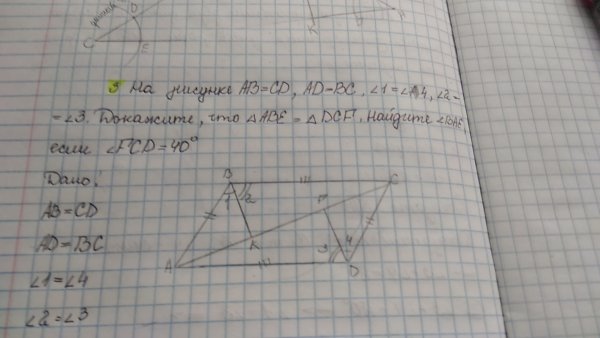 C
K
На рисунке AB=CD, AD=BC, ∠1=∠4, ∠2=
=∠3. Докажите, что △ABE=△DCF. Найдите ∠BAE,
если ∠FCD=40°
Дано:
AB=CD
AD=BC
∠1=∠4
∠2=∠3
B
C
1
2
F
K
3
4
A
D